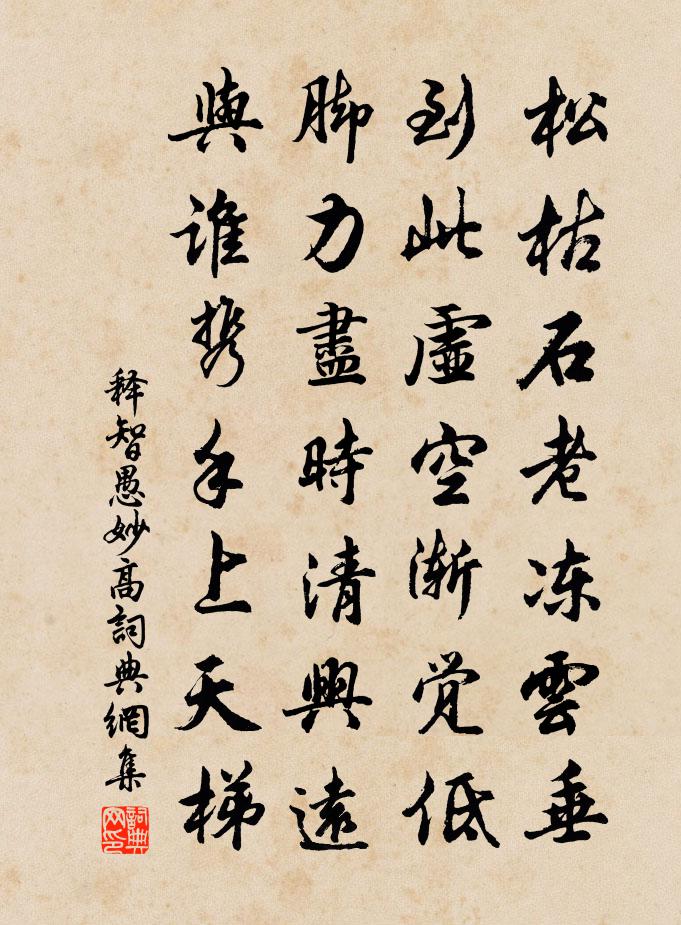 松枯石老冻雲垂
到此虛空漸覺低
脚力盡時清興遠
與誰携手上天梯
释智愚妙高詞典網集
詞典网印